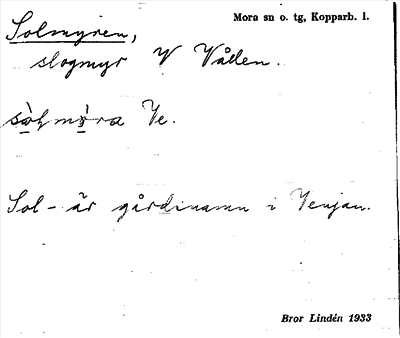 Solmyren,
Mora sn o. tg, Kopparb. l.
slogmyr V Vållen.
Ve.
Sol- är gårdsnamn i Venjan.
Bror Lindén 1933